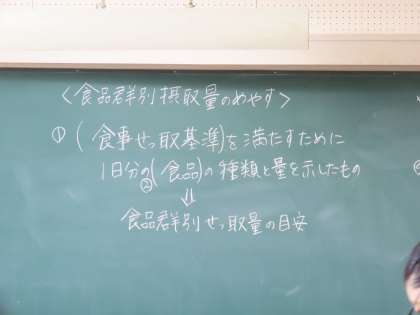 <食品群別摂取量のめやす>
① (食事せっ取基準)を満たすために
1日分の②(食品)の種類と量を示したもの
⇓
食品群別せっ取量の目安